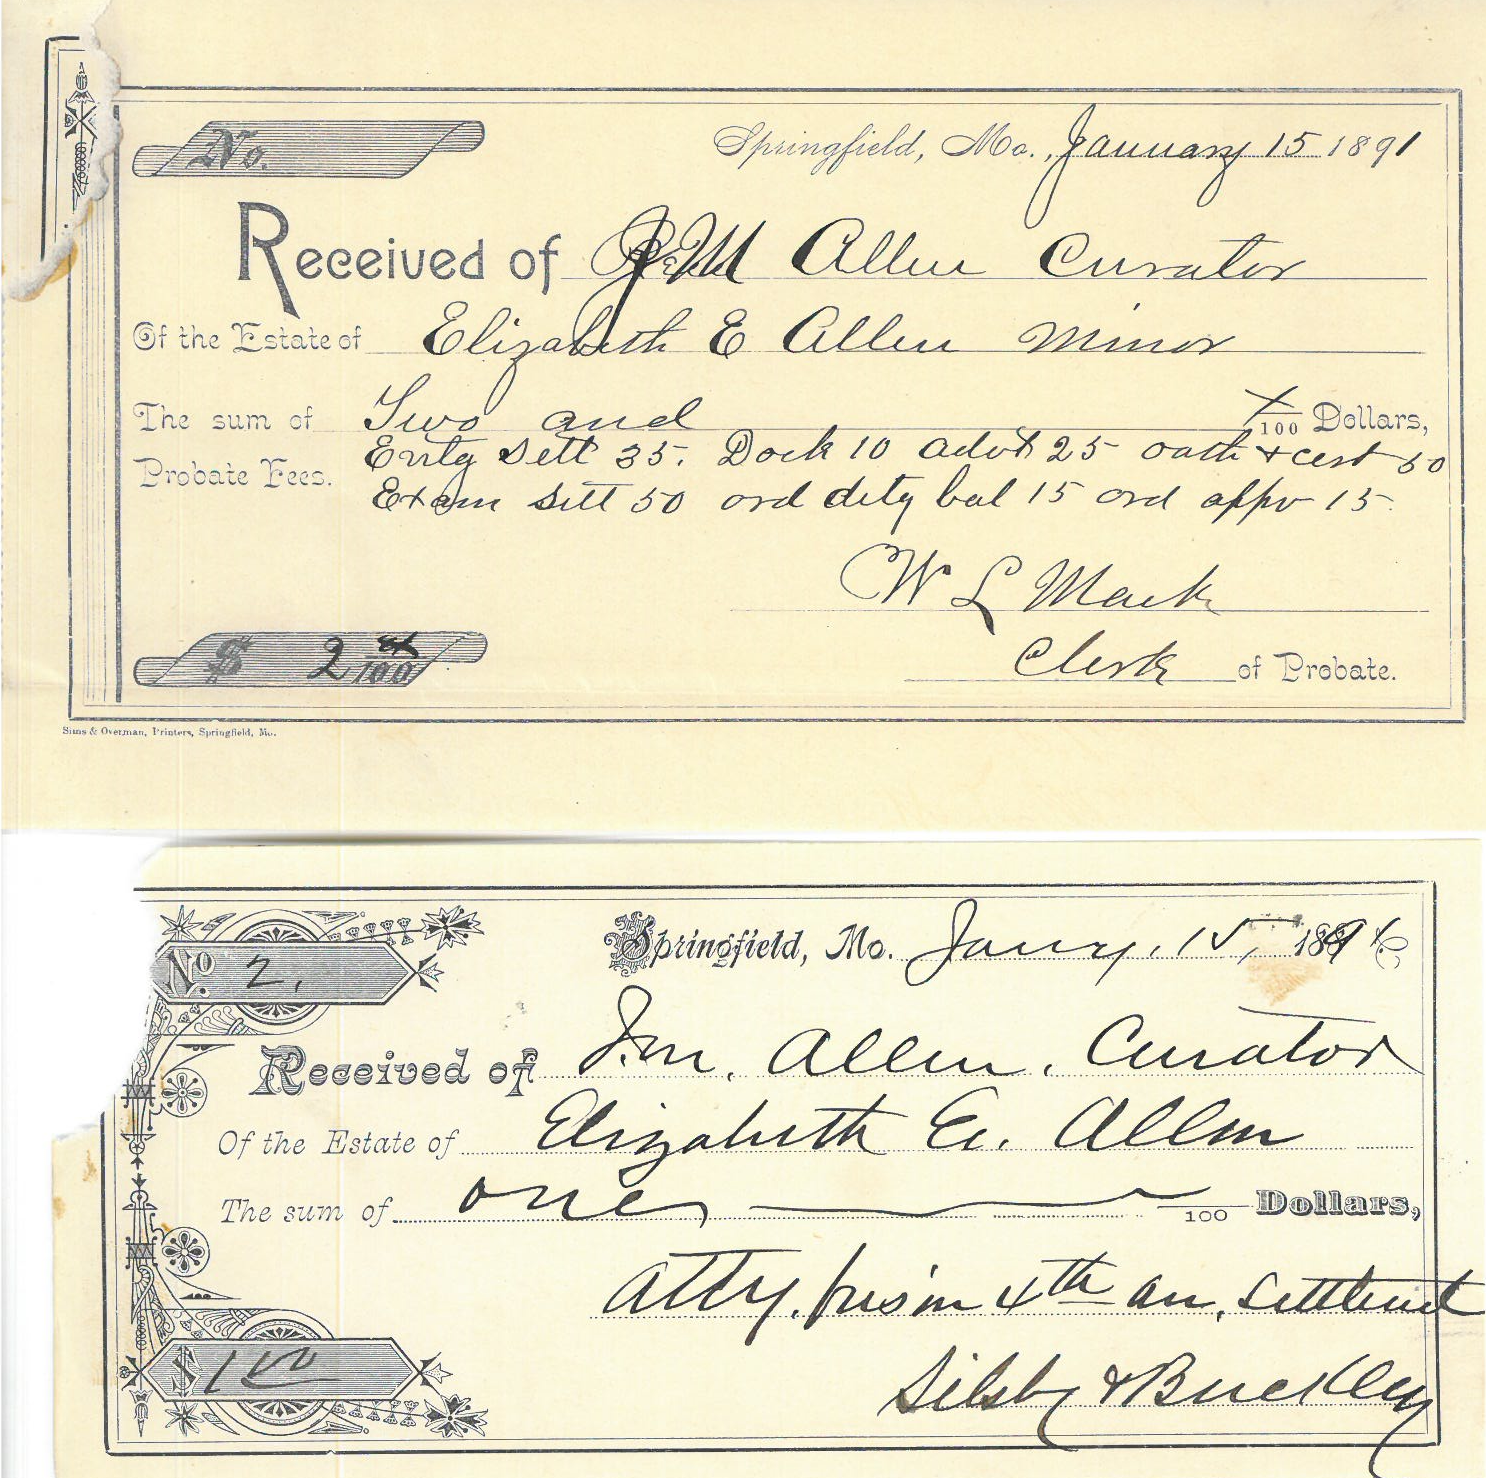 No.
Springfield, Mo., January 15 1891
Received of J M Allen Curator
Of the Estate of Elizabeth E Allen Minor
The sum of Two and x/100 Dollars,
Probate Fees. Entg Sett 35. Dock 10 advt 25 oath + cert 50
Exam Sett 50 ord ditg bal 15 ord appv 15.
W L Mack
Clerk of Probate.
$ 2 xx/100
Sims & Overman, Printers, Springfield, Mo.
No. 2.
Springfield, Mo. Jany. 15, 1891
Received of J.M. Allen. Curator
Of the Estate of Elizabeth E. Allen
The sum of one /100 Dollars,
Atty. fees in 4th an. Settlement
$ 1 00
Silsby & Buckley